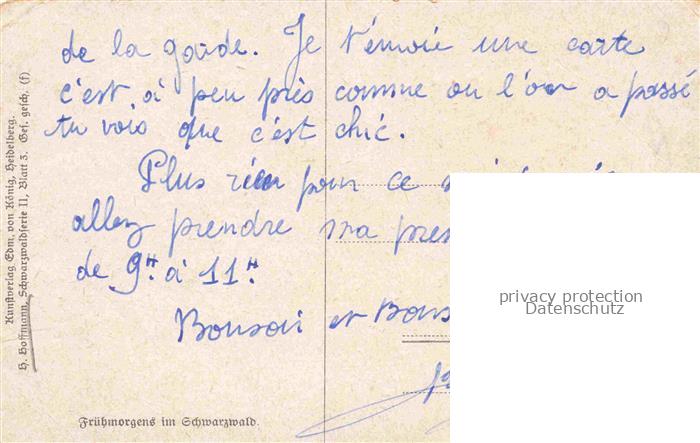 de la garde. Je t'envoie une carte
c'est, à peu près comme ou l'on a passé
tu vois que c'est chic.
Plus rien pour ce
allez prendre ma
de 9ʰ à 11ʰ
Bonsoir et Bons
privacy protection
Datenschutz
Frühmorgens im Schwarzwald.
Kunstverlag Edm. von König, Heidelberg.
H. Hoffmann, Schwarzwaldserie II, Blatt 3. Ges. gesch. (f)